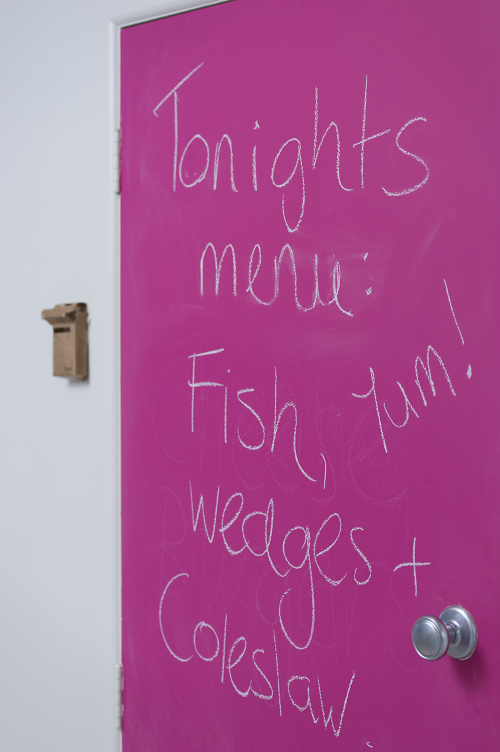 Tonights
menu:
Fish, Yum!
wedges +
Coleslaw